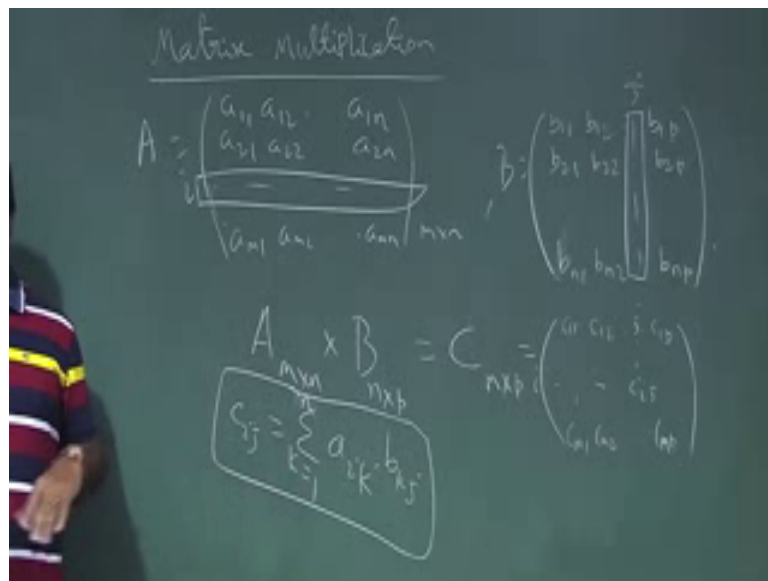 Matrix Multiplication
A = ( a11 a12 . a1n
a21 a22 a2n
i - -
am1 am2 . amn ) m×n
j
, B = ( b11 b12 b1p
b21 b22 b2p
bn1 bn2 bnp ) .
A m×n × B n×p = C n×p =
j
c12 c1p
. - cij
cm1 cm2 cmp
cij = n Σ k=1 aik . bkj